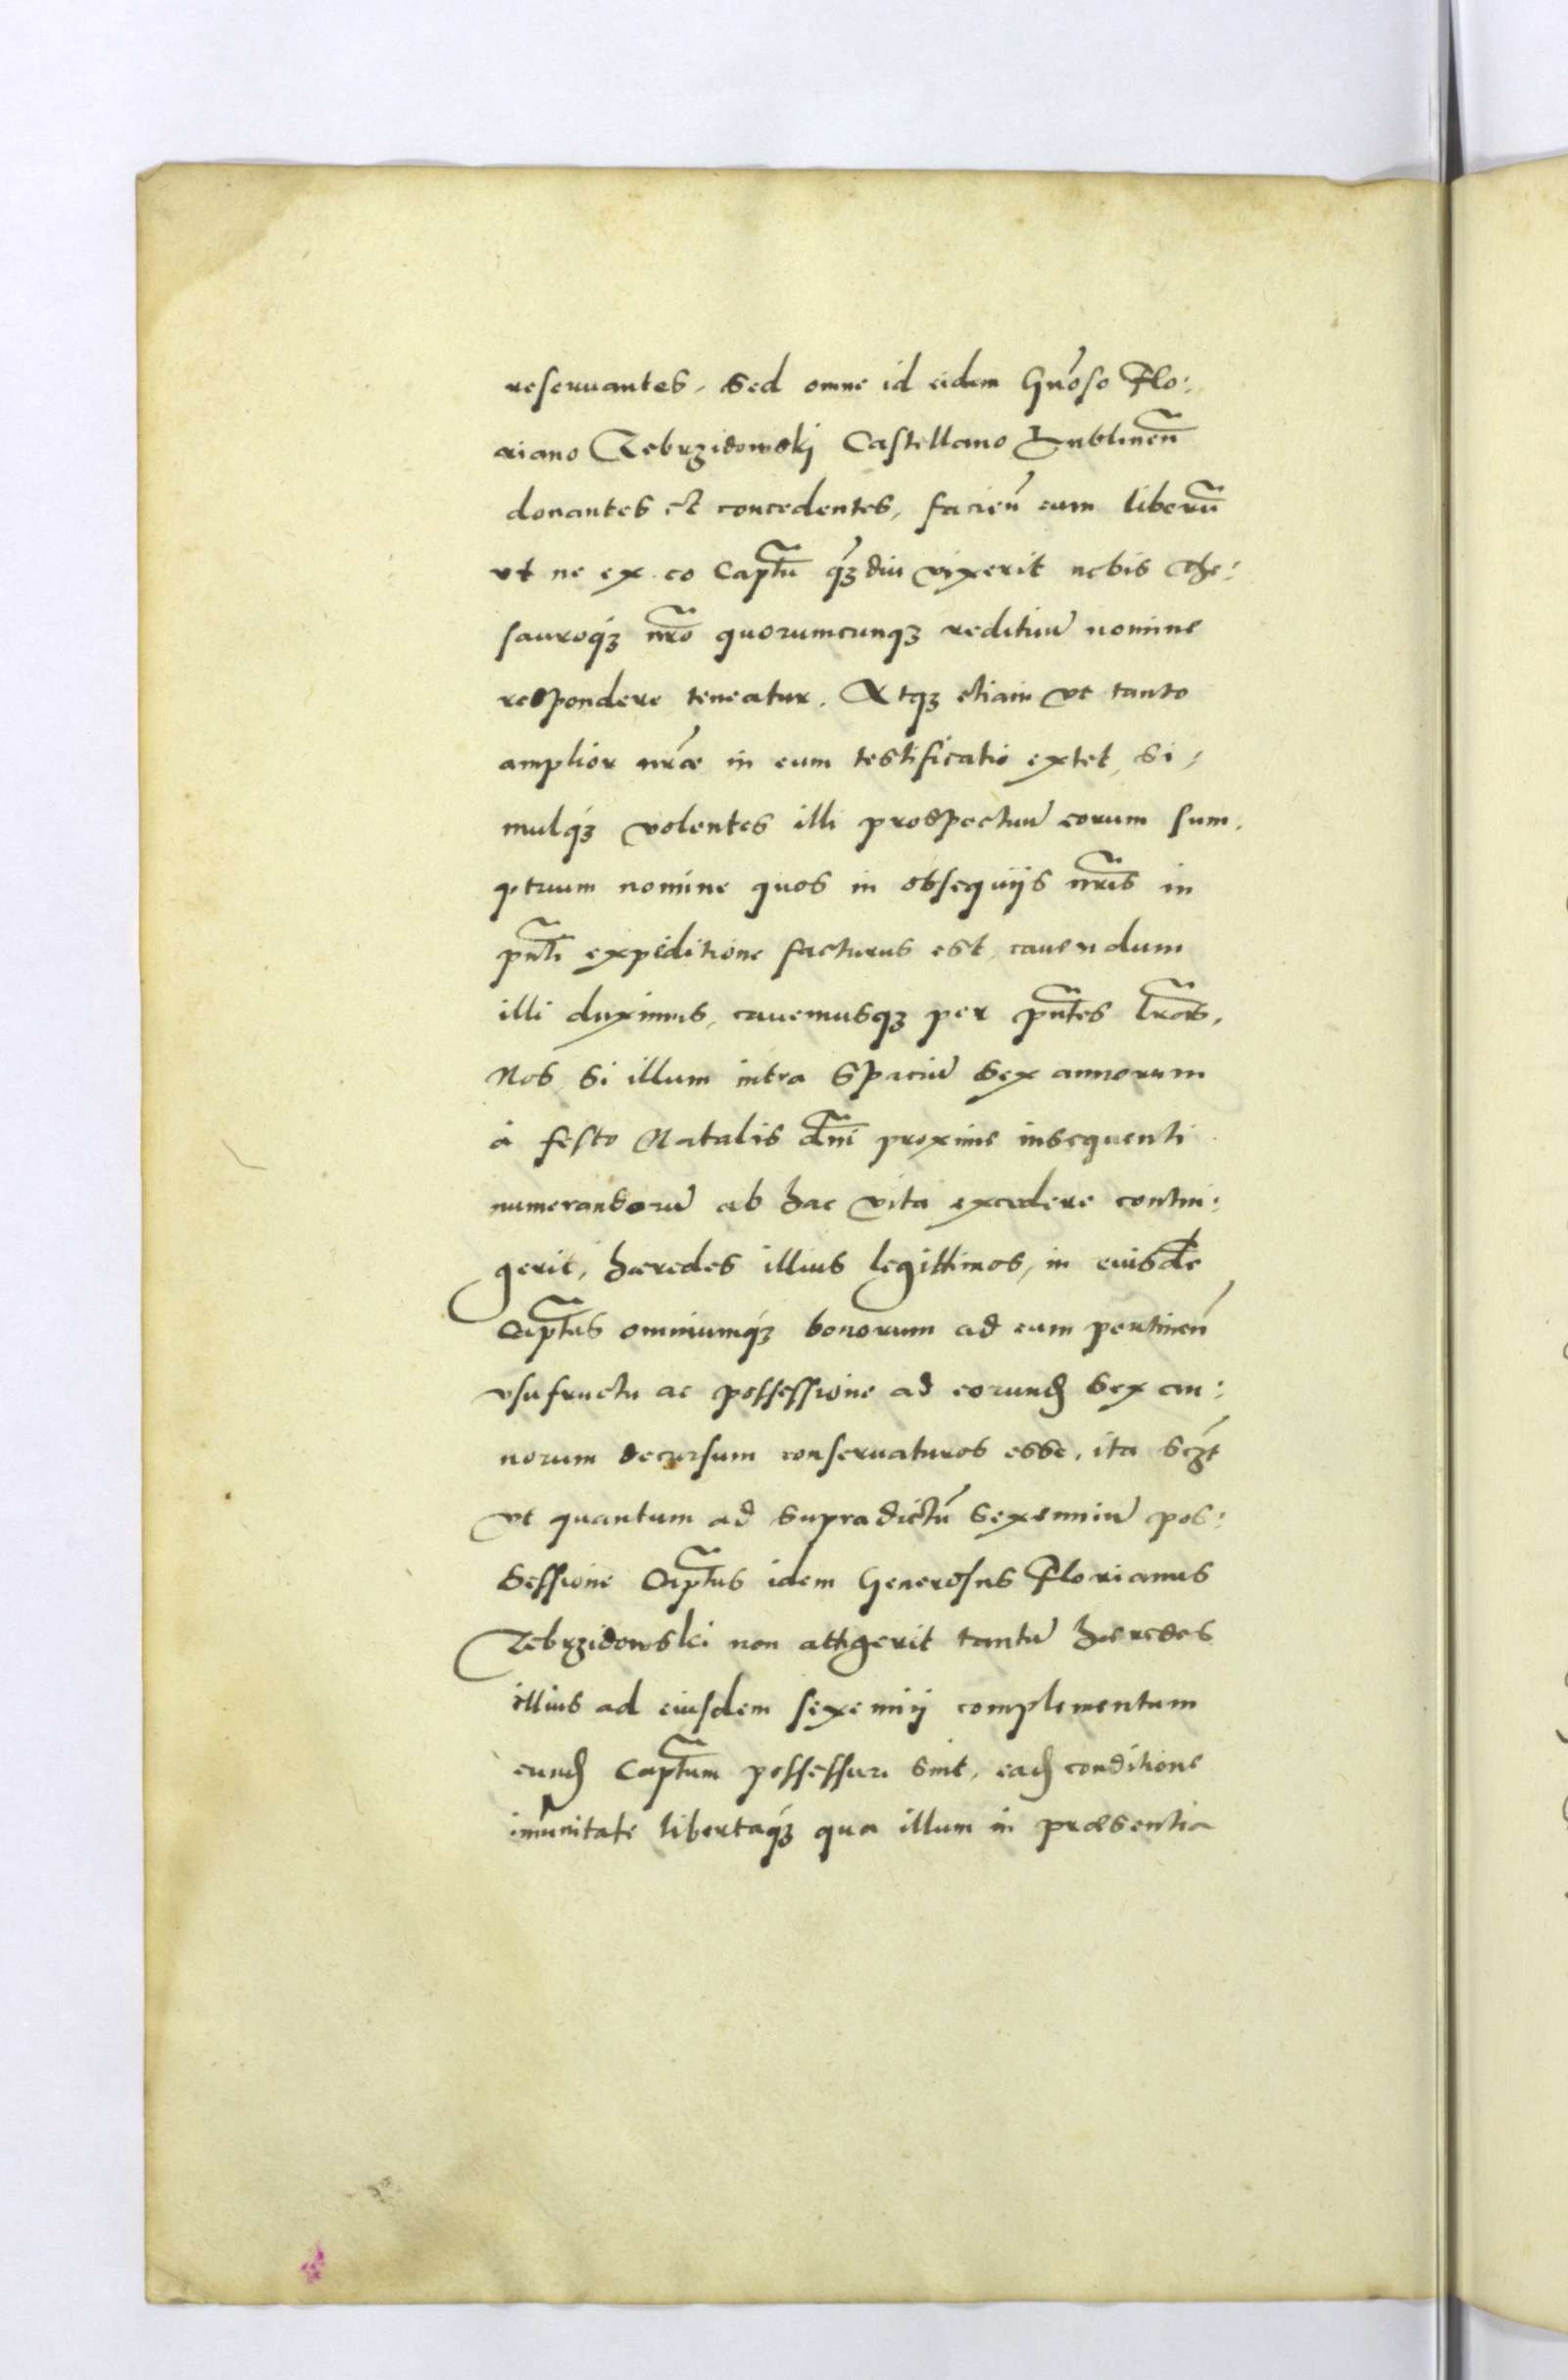 reseruantes, sed omne id eidem Gnoso Flo:
riano Zebrzidowskj Castellano Lublineñ
donantes et concedentes, facieñ eum liberũ
vt ne ex eo Captũ q̃ꝫdiu vixerit nobis The:
sauroqꝫ nr̃o quorumcunqꝫ redituũ nomine
respondere teneatur. Atqꝫ etiam vt tanto
amplior nr̃ae in eum testificatio extet, si,
mulqꝫ volentes illi prospectuũ eorum sum,
ptuum nomine quos in obsequijs nr̃is in
pñti expeditione facturus est, cauendum
illi duximus, cauemusqꝫ per pñtes lr̃as,
Nos si illum intra spaciũ sex annorum
à festo Natalis dñi proxime insequenti
numerandorũ ab hac vita excedere contin:
gerit, haeredes illius legittimos, in eiusdẽ
Captus omniumqꝫ bonorum ad eum pertineñ
vsufructu ac possessione ad eorundꝫ sex an:
norum decursum conseruaturos esse, ita scꝫt
vt quantum ad supradictũ sexenniũ pos:
sessione Captus idem Generosus Florianus
Zebrzidowski non attigerit tantũ haeredes
illius ad eiusdem sexennij complementum
eundꝫ Captum possessuri sint, eadꝫ conditione
im̃unitate libertaqꝫ qua illum in praesentia